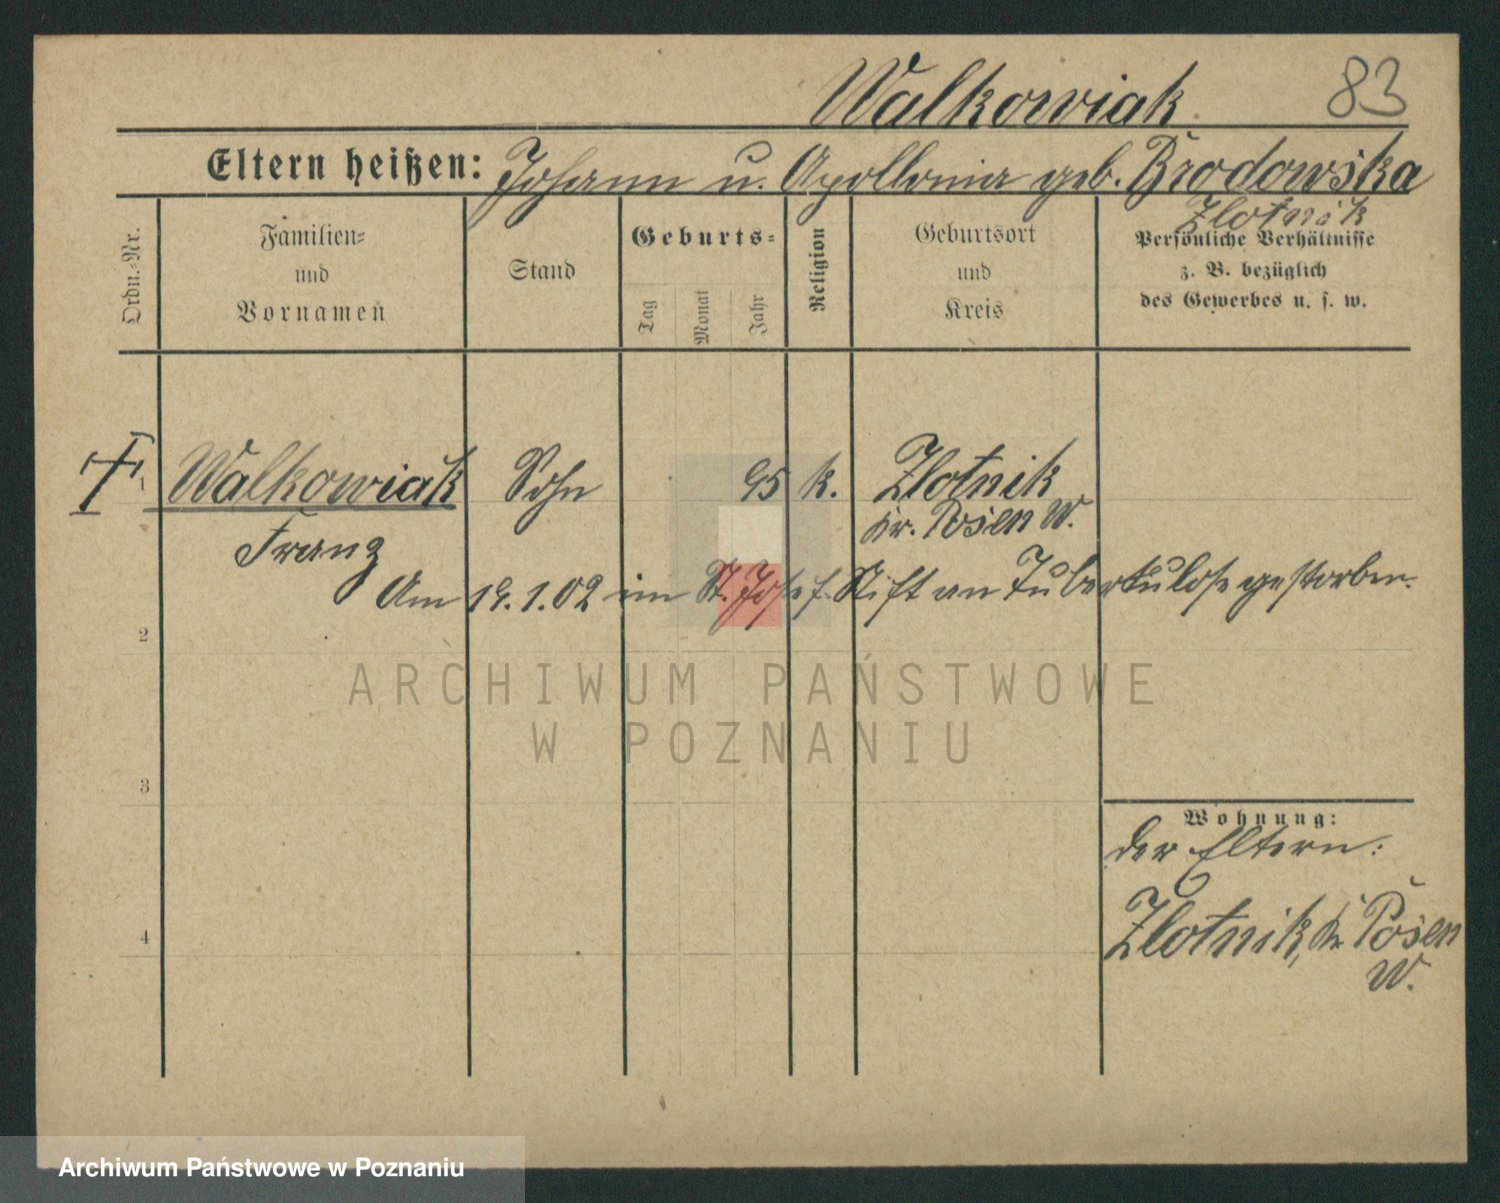 Walkowiak 83
Eltern heißen: Johann u. Apollonia geb. Brodowska
Zlotnik
Ordn.-Nr.
Familien-
und
Vornamen
Stand
Geburts-
Tag
Monat
Jahr
Religion
Geburtsort
und
Kreis
Persönliche Verhältnisse
z. B. bezüglich
des Gewerbes u. s. w.
1 Walkowiak Sohn 95 k. Zlotnik
Franz Kr. Posen W.
Am 19.1.02 im St. Josef. Stift an Tuberkulose gestorben.
2
ARCHIWUM PAŃSTWOWE
W POZNANIU
3
Wohnung:
der Eltern:
4 Zlotnik, Kr Posen
W.
Archiwum Państwowe w Poznaniu